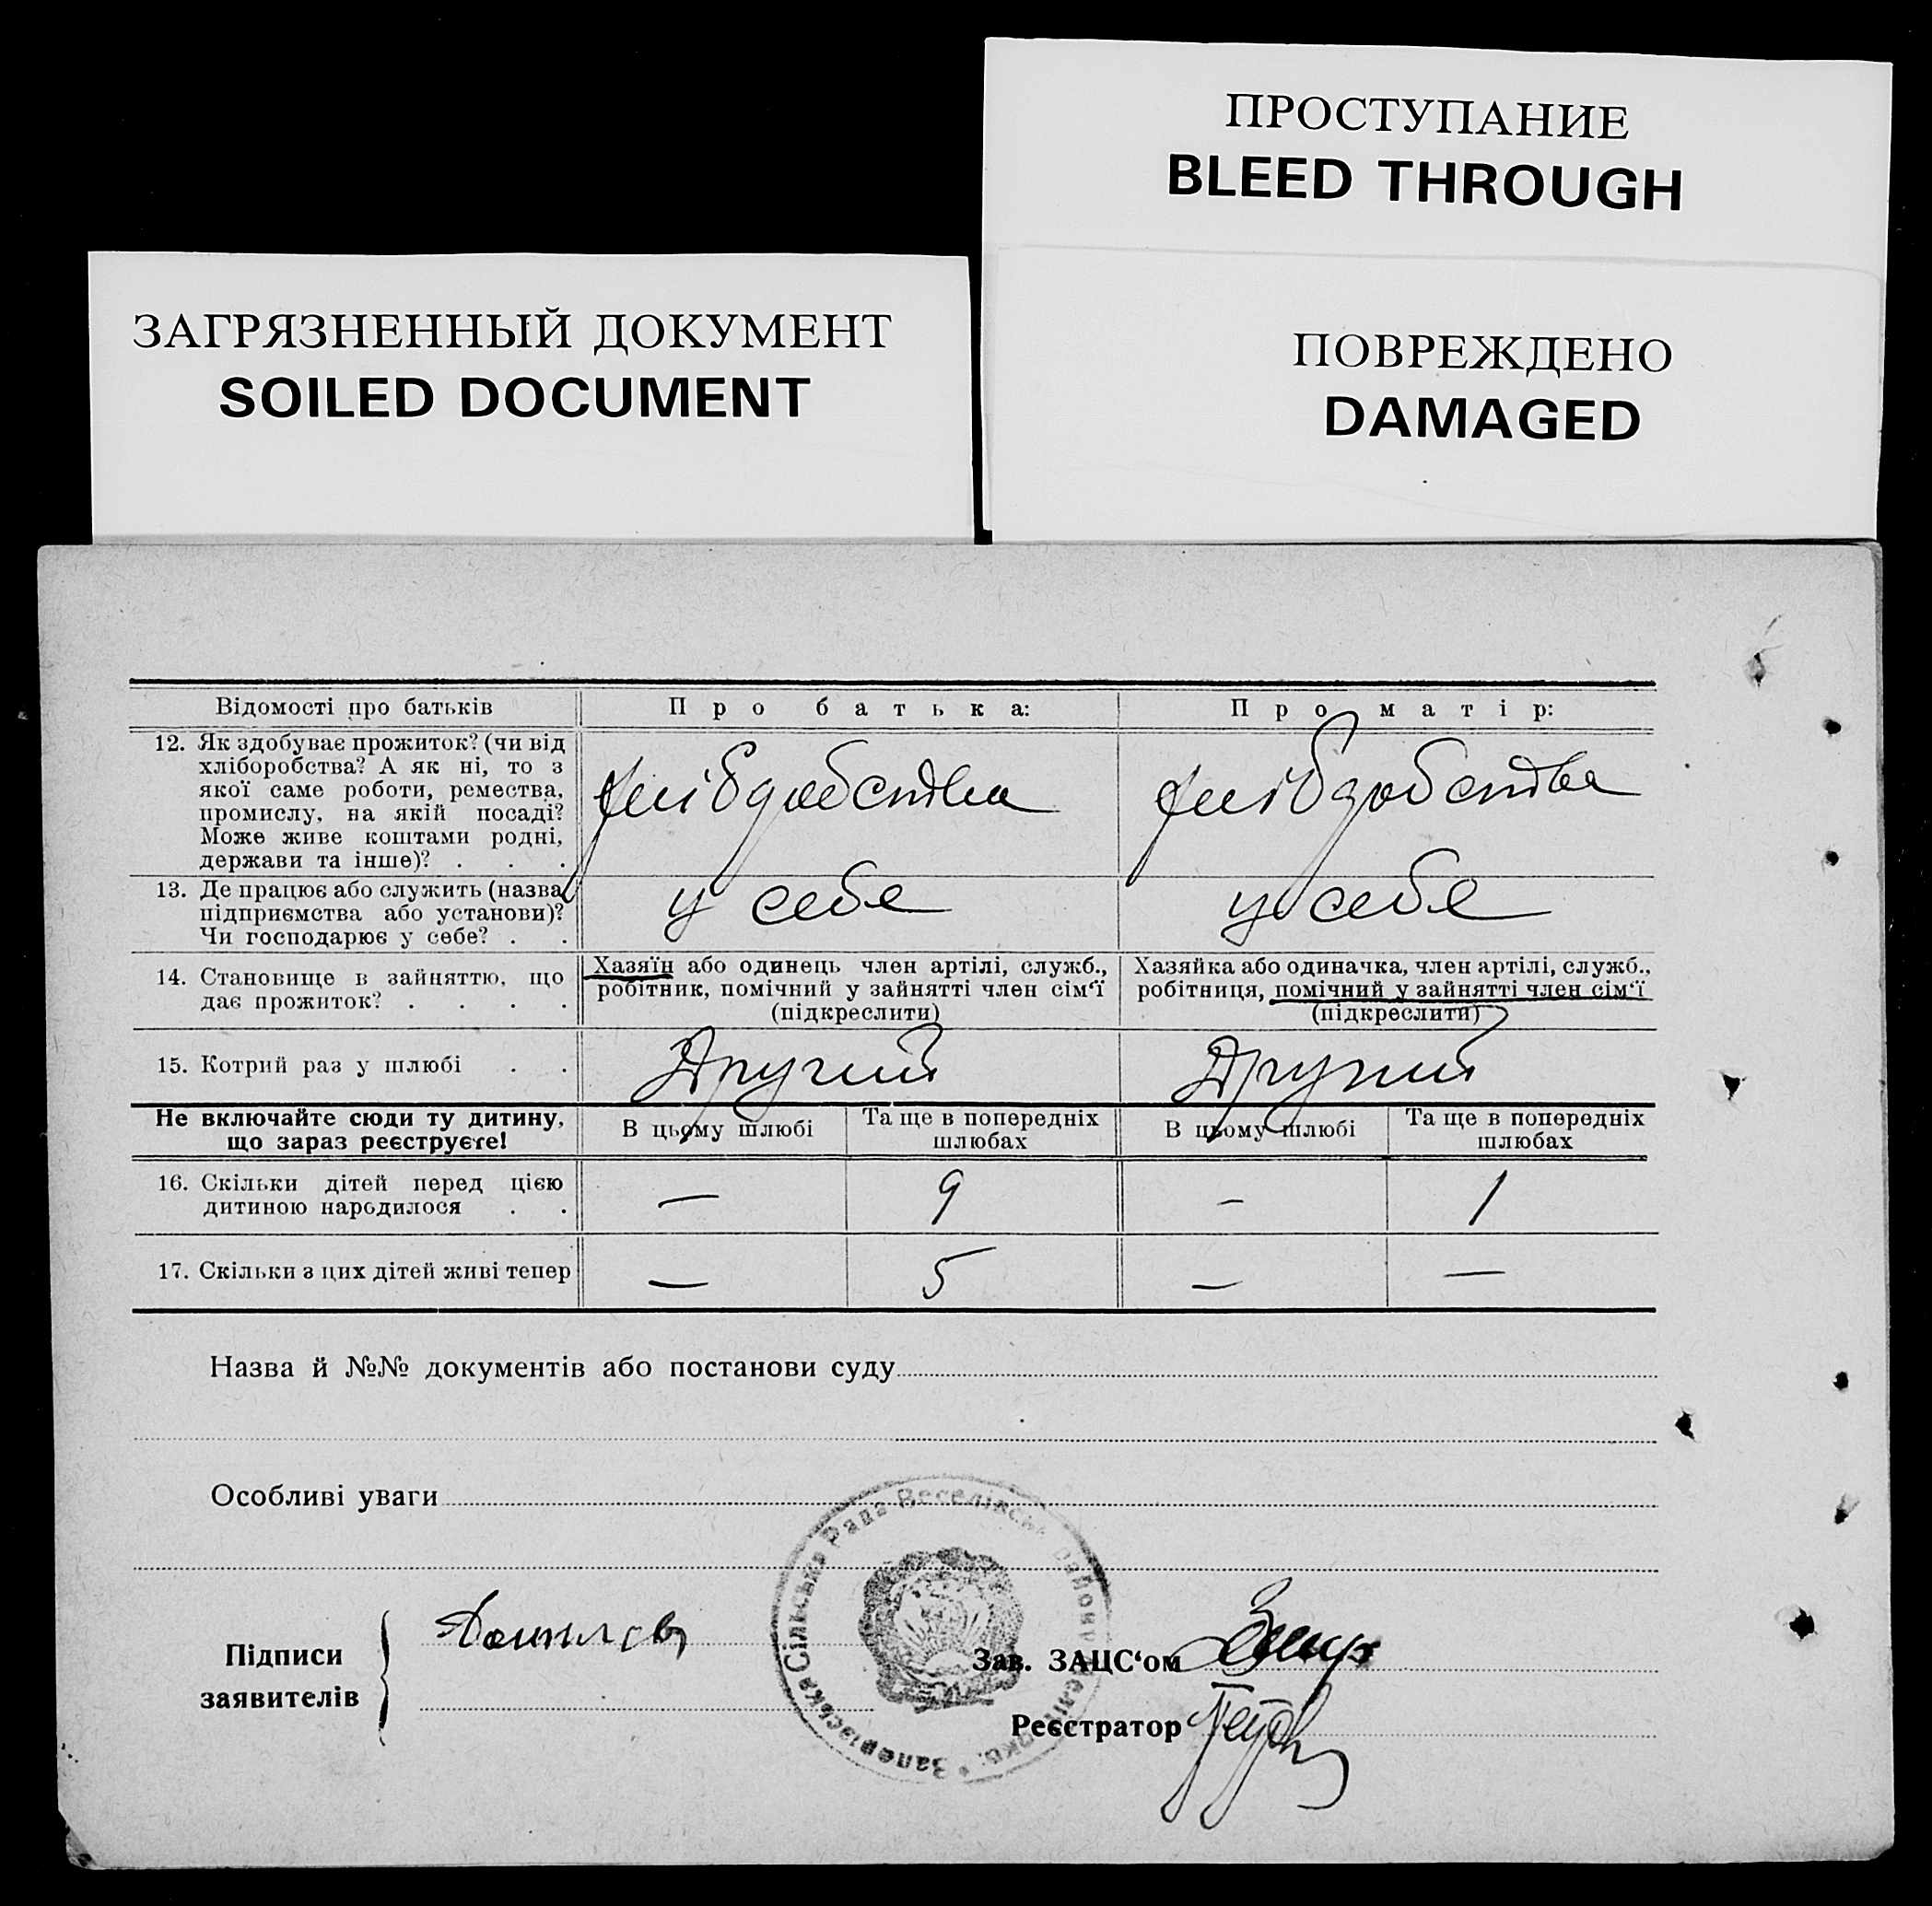 ПРОСТУПАНИЕ
BLEED THROUGH
ЗАГРЯЗНЕННЫЙ ДОКУМЕНТ
SOILED DOCUMENT
ПОВРЕЖДЕНО
DAMAGED
Відомості про батьків
Про батька:
Про матір:
12. Як здобуває прожиток? (чи від
хліборобства? А як ні, то з
якої саме роботи, ремества,
промислу, на якій посаді?
Може живе коштами родні,
держави та інше)? . . .
13. Де працює або служить (назва
підприємства або установи)?
Чи господарює у себе? . .
у себе
у себе
14. Становище в зайняттю, що
дає прожиток? . . . .
Хазяїн або одинець член артілі, служб.,
робітник, помічний у зайнятті член сім‘ї
(підкреслити)
Хазяйка або одиначка, член артілі, служб.,
робітниця, помічний у зайнятті член сім‘ї
(підкреслити)
15. Котрий раз у шлюбі . .
Другий
Другий
Не включайте сюди ту дитину,
що зараз реєструєте!
В цьому шлюбі
Та ще в попередніх
шлюбах
В цьому шлюбі
Та ще в попередніх
шлюбах
16. Скільки дітей перед цією
дитиною народилося . .
—
9
—
1
17. Скільки з цих дітей живі тепер
—
5
—
—
Назва й №№ документів або постанови суду
Особливі уваги
Підписи
заявителів
Сільська Рада
Зав. ЗАЦС‘ом
Реєстратор